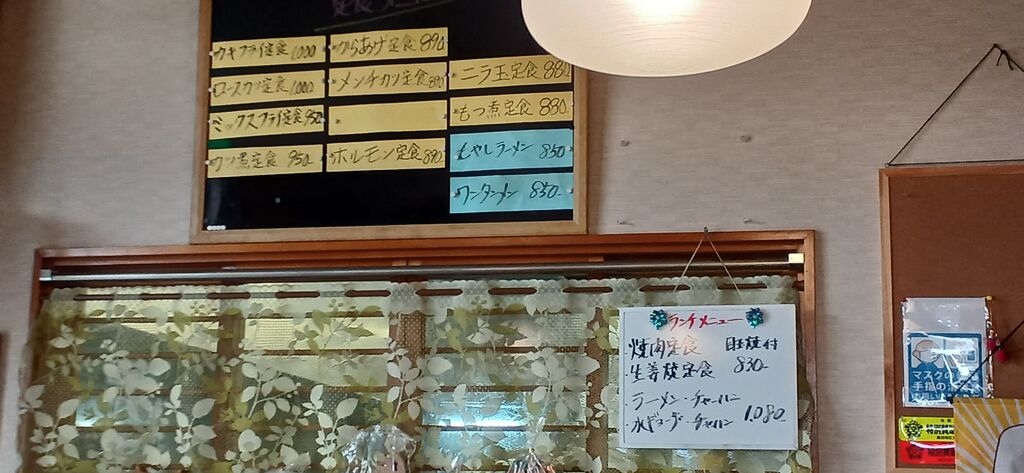 カキフライ定食 1000
ロースカツ定食 1000
ミックスフライ定食 950
カツ煮定食 950
からあげ定食 890
メンチカツ定食 890
ホルモン定食 890
ニラ玉定食 880
もつ煮定食 880
もやしラーメン 850
ワンタンメン 850-
ランチメニュー
・焼肉定食 目玉焼付
・生姜焼定食 830-
・ラーメン・チャーハン
・水ギョーザ・チャーハン 1.080-
マスクの
手指の